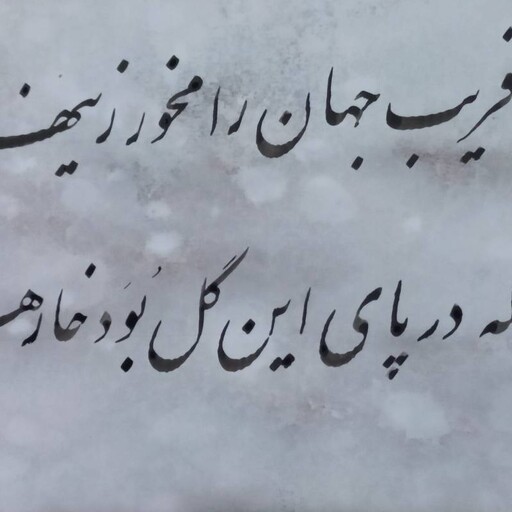 فریب جهان را مخور زینه
که در پای این گل بُوَد خاره